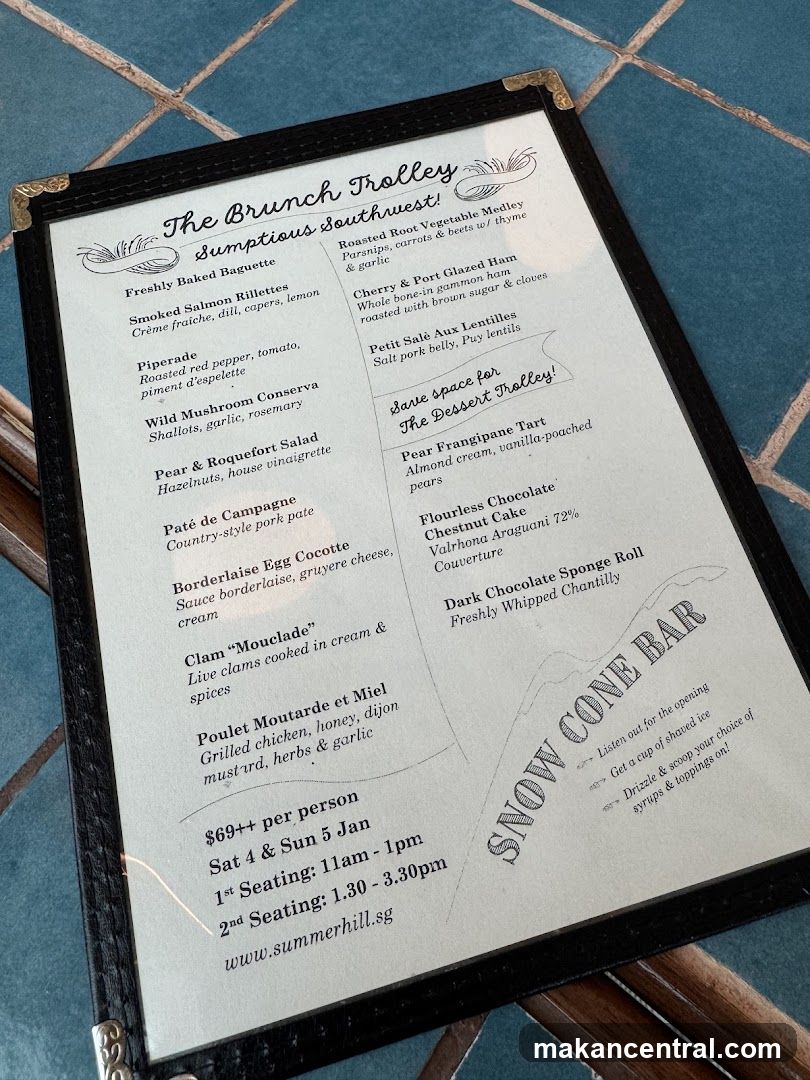 The Brunch Trolley
Sumptious Southwest!
Freshly Baked Baguette
Smoked Salmon Rillettes
Crème fraiche, dill, capers, lemon
Piperade
Roasted red pepper, tomato,
piment d'espelette
Wild Mushroom Conserva
Shallots, garlic, rosemary
Pear & Roquefort Salad
Hazelnuts, house vinaigrette
Paté de Campagne
Country-style pork pate
Borderlaise Egg Cocotte
Sauce borderlaise, gruyere cheese,
cream
Clam “Mouclade”
Live clams cooked in cream &
spices
Poulet Moutarde et Miel
Grilled chicken, honey, dijon
mustard, herbs & garlic
$69++ per person
Sat 4 & Sun 5 Jan
1st Seating: 11am - 1pm
2nd Seating: 1.30 - 3.30pm
www.summerhill.sg
Roasted Root Vegetable Medley
Parsnips, carrots & beets w/ thyme
& garlic
Cherry & Port Glazed Ham
Whole bone-in gammon ham
roasted with brown sugar & cloves
Petit Salè Aux Lentilles
Salt pork belly, Puy lentils
Save space for
The Dessert Trolley!
Pear Frangipane Tart
Almond cream, vanilla-poached
pears
Flourless Chocolate
Chestnut Cake
Valrhona Araguani 72%
Couverture
Dark Chocolate Sponge Roll
Freshly Whipped Chantilly
SNOW CONE BAR
Listen out for the opening
Get a cup of shaved ice
Drizzle & scoop your choice of
syrups & toppings on!
makancentral.com